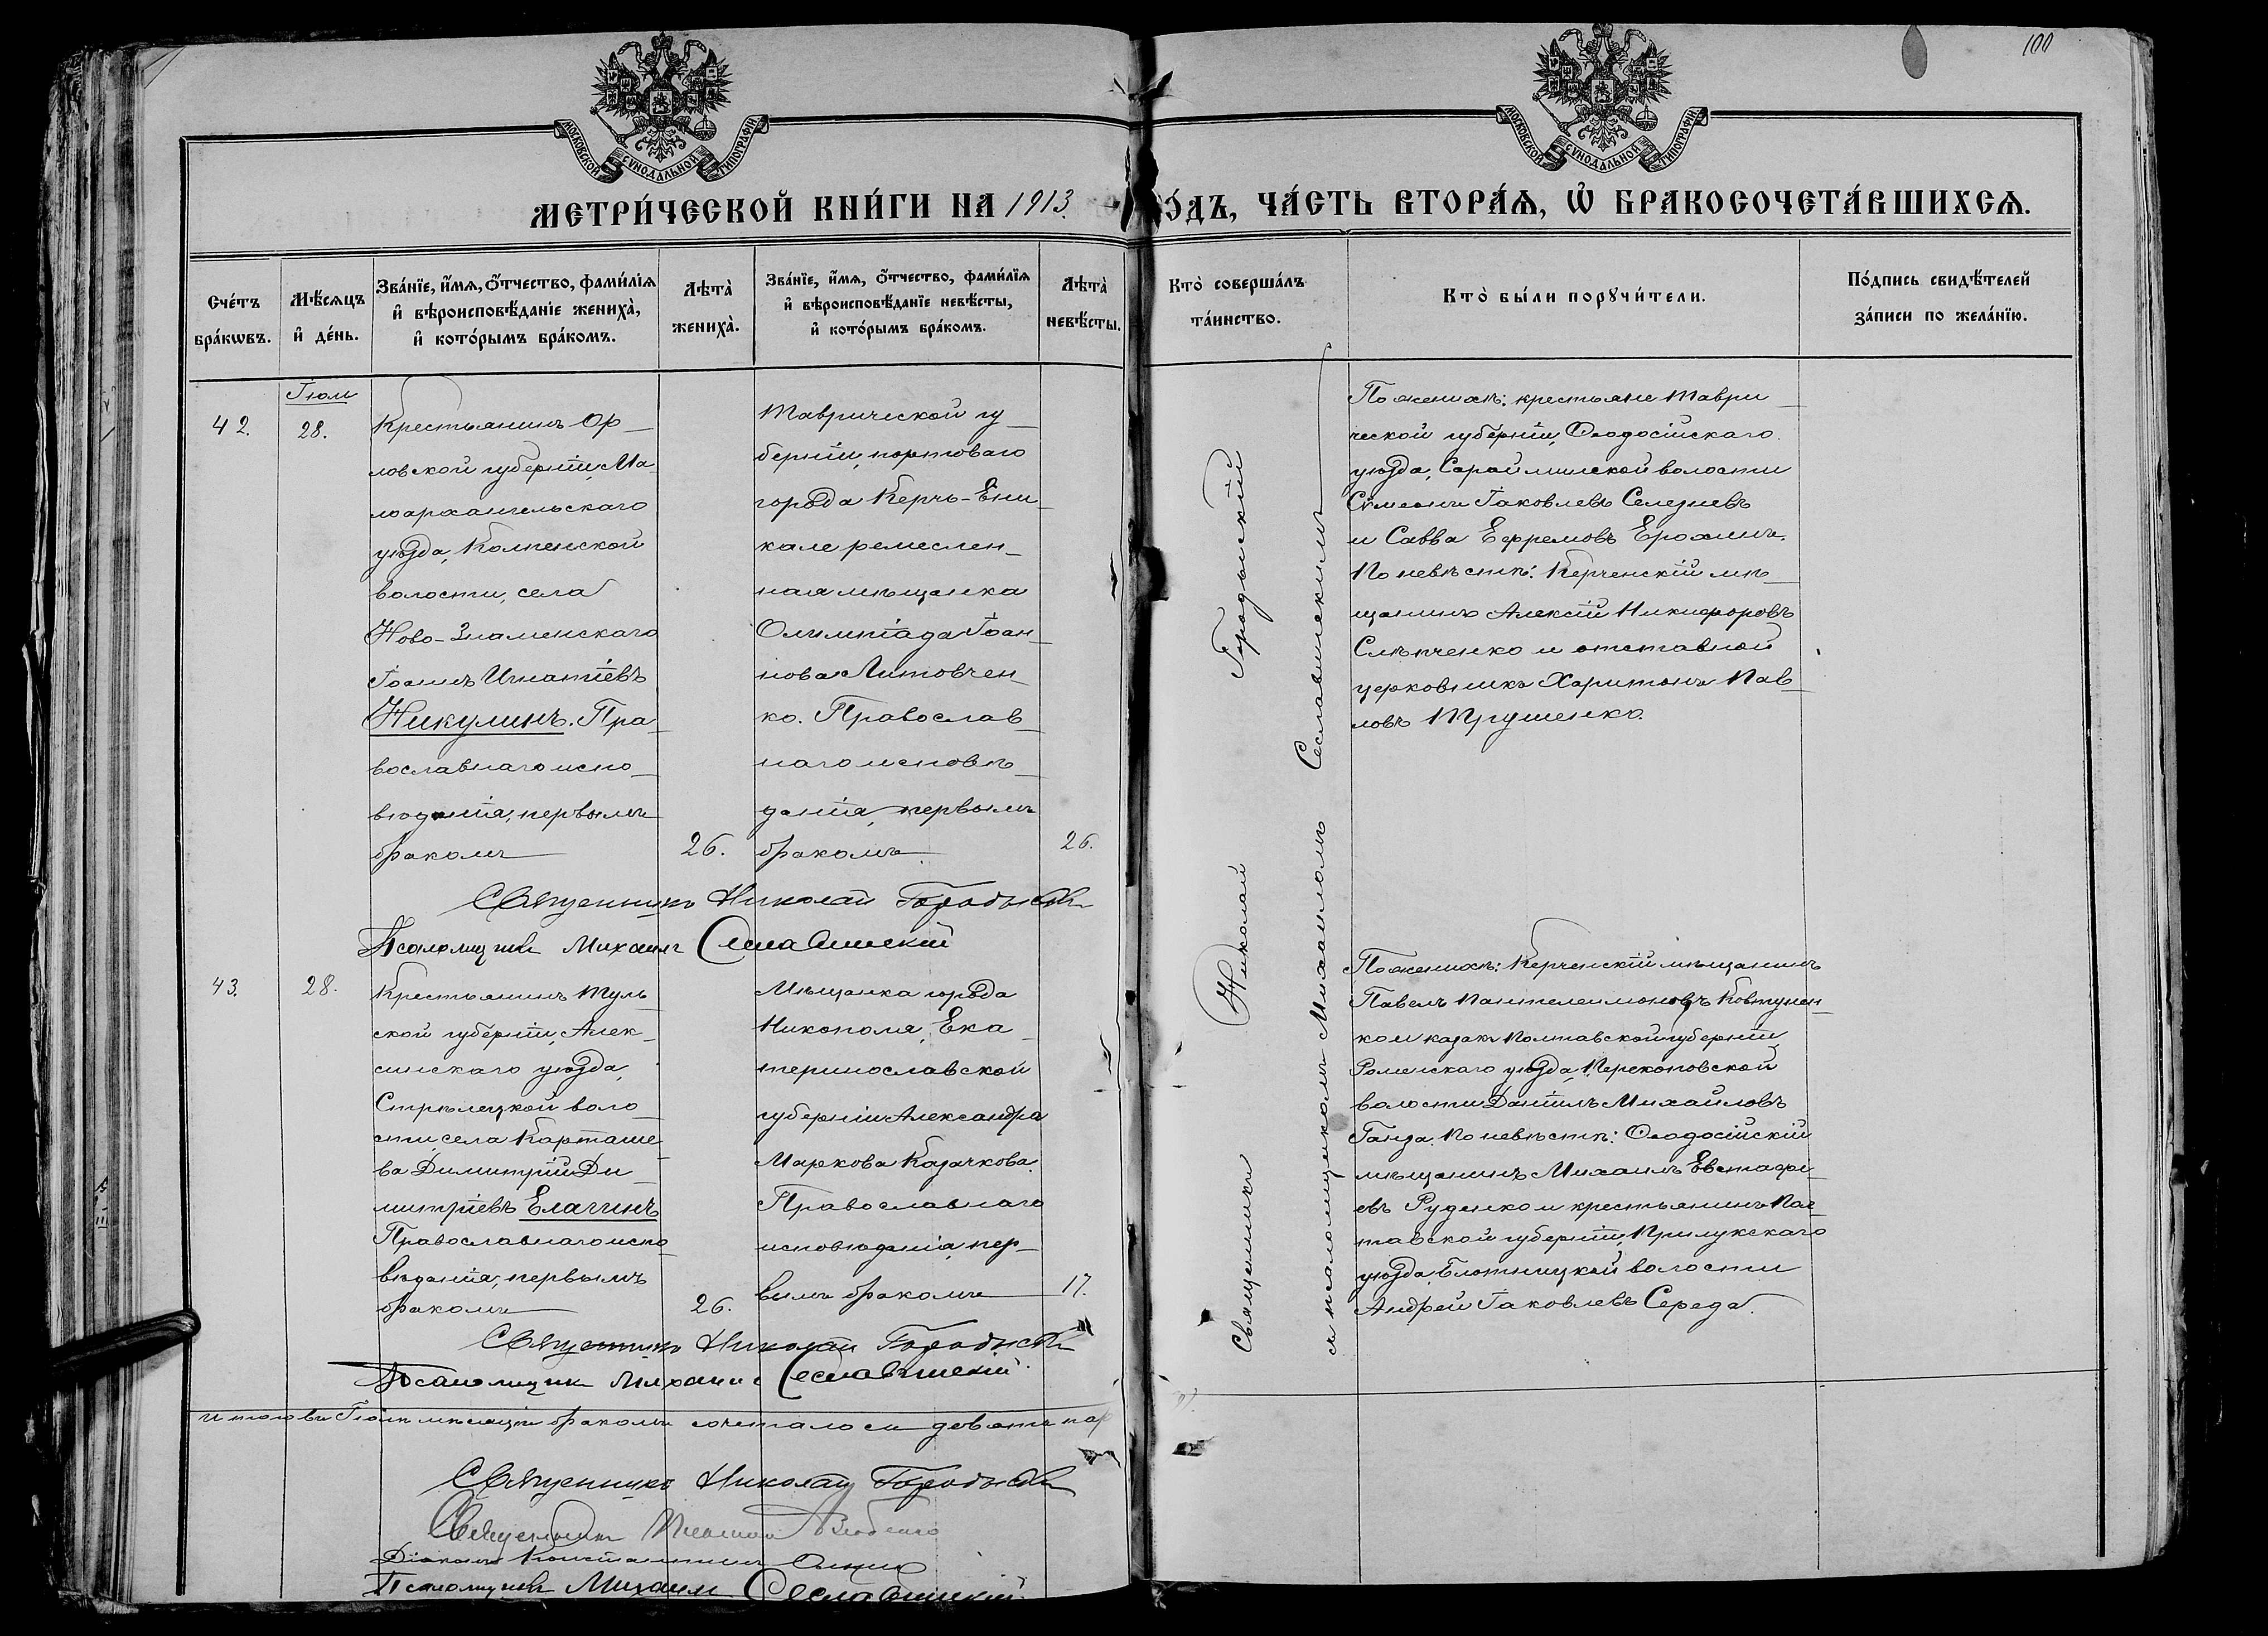 100
МОСКОВСКОЙ СѴНОДАЛЬНОЙ ТИПОГРАФІИ
МОСКОВСКОЙ СѴНОДАЛЬНОЙ ТИПОГРАФІИ
МЕТРИ́ЧЕСКОЙ КНИ́ГИ НА 1913.
О́ДЪ, ЧА́СТЬ ВТОРА́Ѧ, Ѡ҆ БРАКОСОЧЕТА́ВШИХСѦ.
Сче́тъ
бра́кѡвъ.
Мѣ́сѧцъ
и҆ де́нь.
Зва́нїе, и҆́мѧ, ѻ҆́тчество, фами́лїѧ
и҆ вѣроисповѣ́данїе жениха̀,
и҆ кото́рымъ бра́комъ.
Лѣта̀
жениха̀.
Зва́нїе, и҆́мѧ, ѻ҆́тчество, фами́лїѧ
и҆ вѣроисповѣ́данїе невѣ́сты,
и҆ кото́рымъ бра́комъ.
Лѣта̀
невѣ́сты.
Кто̀ соверша́лъ
та́инство.
Кто̀ бы́ли порꙋчи́тели.
По́дпись свидѣ́телей
за́писи по жела́нїю.
42.
Іюль
28.
Крестьянинъ Ор-
ловской губерніи, Ма-
лоархангельскаго
уѣзда, Колпенской
волости, села
Ново-Знаменскаго
Іоаннъ Игнатіевъ
Никулинъ. Пра-
вославнаго испо-
вѣданія, первымъ
бракомъ
26.
Таврической гу-
берніи, портоваго
города Керчь-Ени-
кале ремеслен-
ная мѣщанка
Олимпіада Іоан-
нова Литовчен-
ко. Православ-
наго исповѣ-
данія, первымъ
бракомъ.
26.
Священникъ Николай Городыскій
Псаломщикъ Михаилъ Сеславинскій
Священникъ Николай Городыскій
съ псаломщикомъ Михаиломъ Сеславинскимъ
По женихѣ: крестьяне Таври-
ческой губерніи, Ѳеодосійскаго
уѣзда, Сарайминской волости
Сѵмеонъ Іаковлевъ Селезневъ
и Савва Ефремовъ Ерохинъ.
По невѣстѣ: Керченскій мѣ-
щанинъ Алексій Никифоровъ
Слѣпченко и отставной
церковникъ Харитонъ Пав-
ловъ Трушенко.
43.
28.
Крестьянинъ Туль-
ской губерніи, Алек-
синскаго уѣзда,
Стрѣлецкой воло-
сти, села Карташе-
ва Димитрій Ди-
митріевъ Елагинъ
Православнаго испо-
вѣданія, первымъ
бракомъ
26.
Мѣщанка города
Никополя, Ека-
теринославской
губерніи Александра
Маркова Казачкова.
Православнаго
исповѣданія, пер-
вымъ бракомъ
17.
Священникъ Николай Городыскій
Псаломщикъ Михаилъ Сеславинскій
По женихѣ: Керченскій мѣщанинъ
Павелъ Пантелеимоновъ Ковтунен-
ко и казакъ Полтавской губерніи
Роменскаго уѣзда, Перекоповской
волости Даніилъ Михайловъ
Ганза. По невѣстѣ: Ѳеодосійскій
мѣщанинъ Михаилъ Евстафі-
евъ Руденко и крестьянинъ Пол-
тавской губерніи, Прилукскаго
уѣзда, Блотницкой волости
Андрей Іаковлевъ Середа.
Итого въ Іюлѣ мѣсяцѣ бракомъ сочеталось девять пар
Священникъ Николай Городыскій
Священникъ
Діаконъ Константинъ
Псаломщикъ Михаилъ Сеславинскій